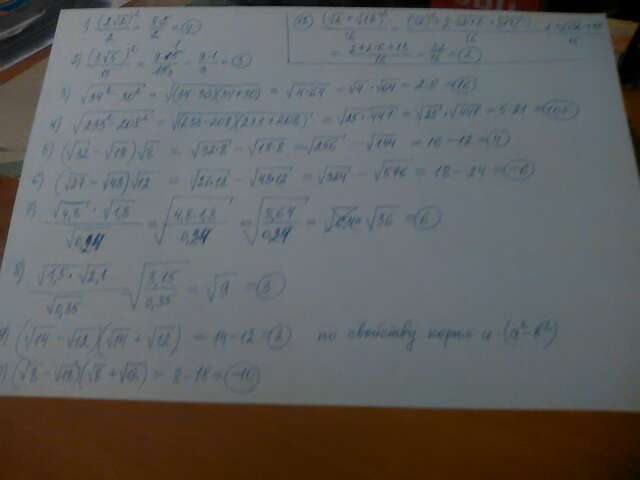 1) (2√2)²/2 = 4·2/2 = 4
2) (3√5)²/15 = 9·5/15 = 9·1/3 = 3
3) √34²-30² = √(34-30)(34+30) = √4·64 = √4 · √64 = 2·8 = 16
4) √233²-208² = √(233-208)(233+208) = √25·441 = √25 · √441 = 5·21 = 105
5) (√32 - √18)√8 = √32·8 - √18·8 = √256 - √144 = 16-12 = 4
6) (√27 - √48)√12 = √27·12 - √48·12 = √324 - √576 = 18-24 = -6
7) √4,8 · √1,8 / √0,24 = √4,8·1,8/0,24 = √8,64/0,24 = √36 = 6
8) √1,5·√2,1 / √0,35 = √3,15/0,35 = √9 = 3
(√14 - √12)(√14 + √12) = 14-12 = 2 по свойству корня и (a²-b²)
(√8 - √18)(√8 + √18) = 8-18 = -10
(√2 + √18)²/16
= 2+2·6+18/16 = 32/16 = 2